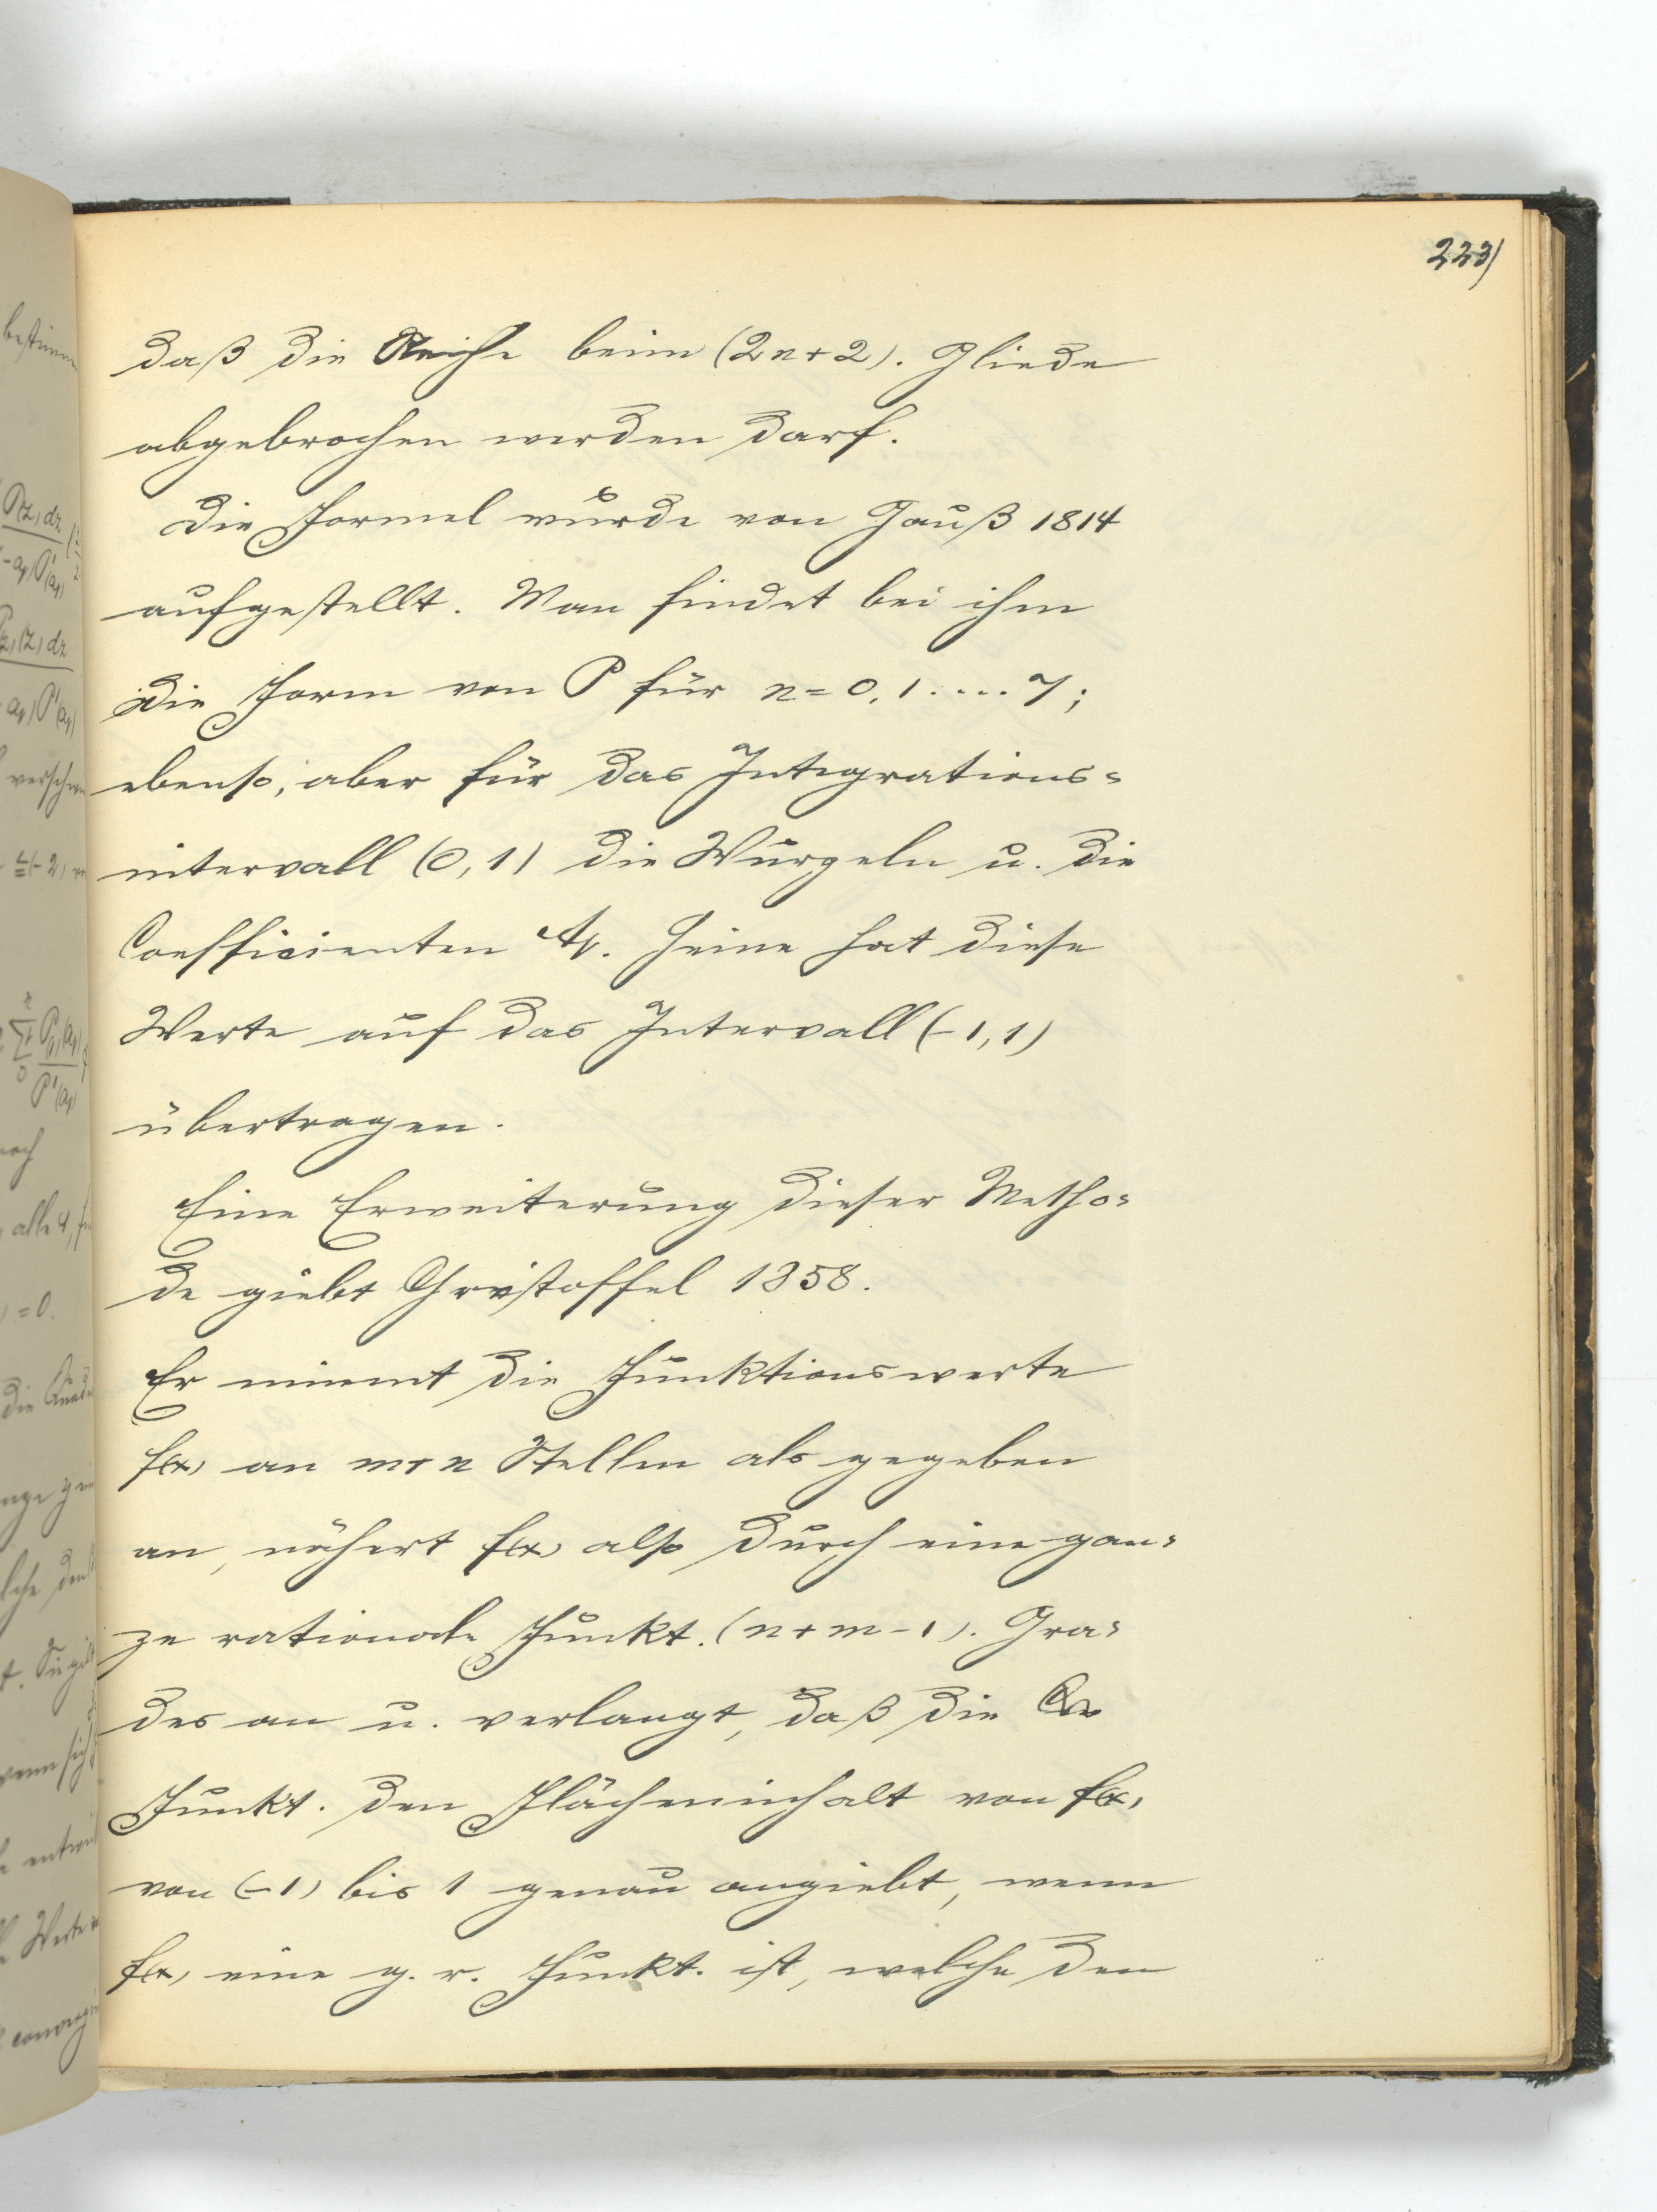 223)
daß die Reihe beim (2n+2). Gliede
abgebrochen werden darf.
Die Formel wurde von Gauß 1814
aufgestellt. Man findet bei ihm
die Form von P für n=0,1....7;
ebenso, aber für das Integrations=
intervall (0,1) die Wurzeln u. die
Coefficienten A₁. Heine hat diese
Werte auf das Intervall (-1,1)
übertragen.
Eine Erweiterung dieser Metho=
de giebt Christoffel 1858.
Er nimmt die Funktionswerte
f(x) an m+n Stellen als gegeben
an, nähert f(x) also durch eine gan=
ze rationale Funkt. (n+m-1). Gra=
des an u. verlangt, daß die
Funkt. den Flächeninhalt von f(x)
von (-1) bis 1 genau angiebt, wenn
f(x) eine g. r. Funkt. ist, welche den